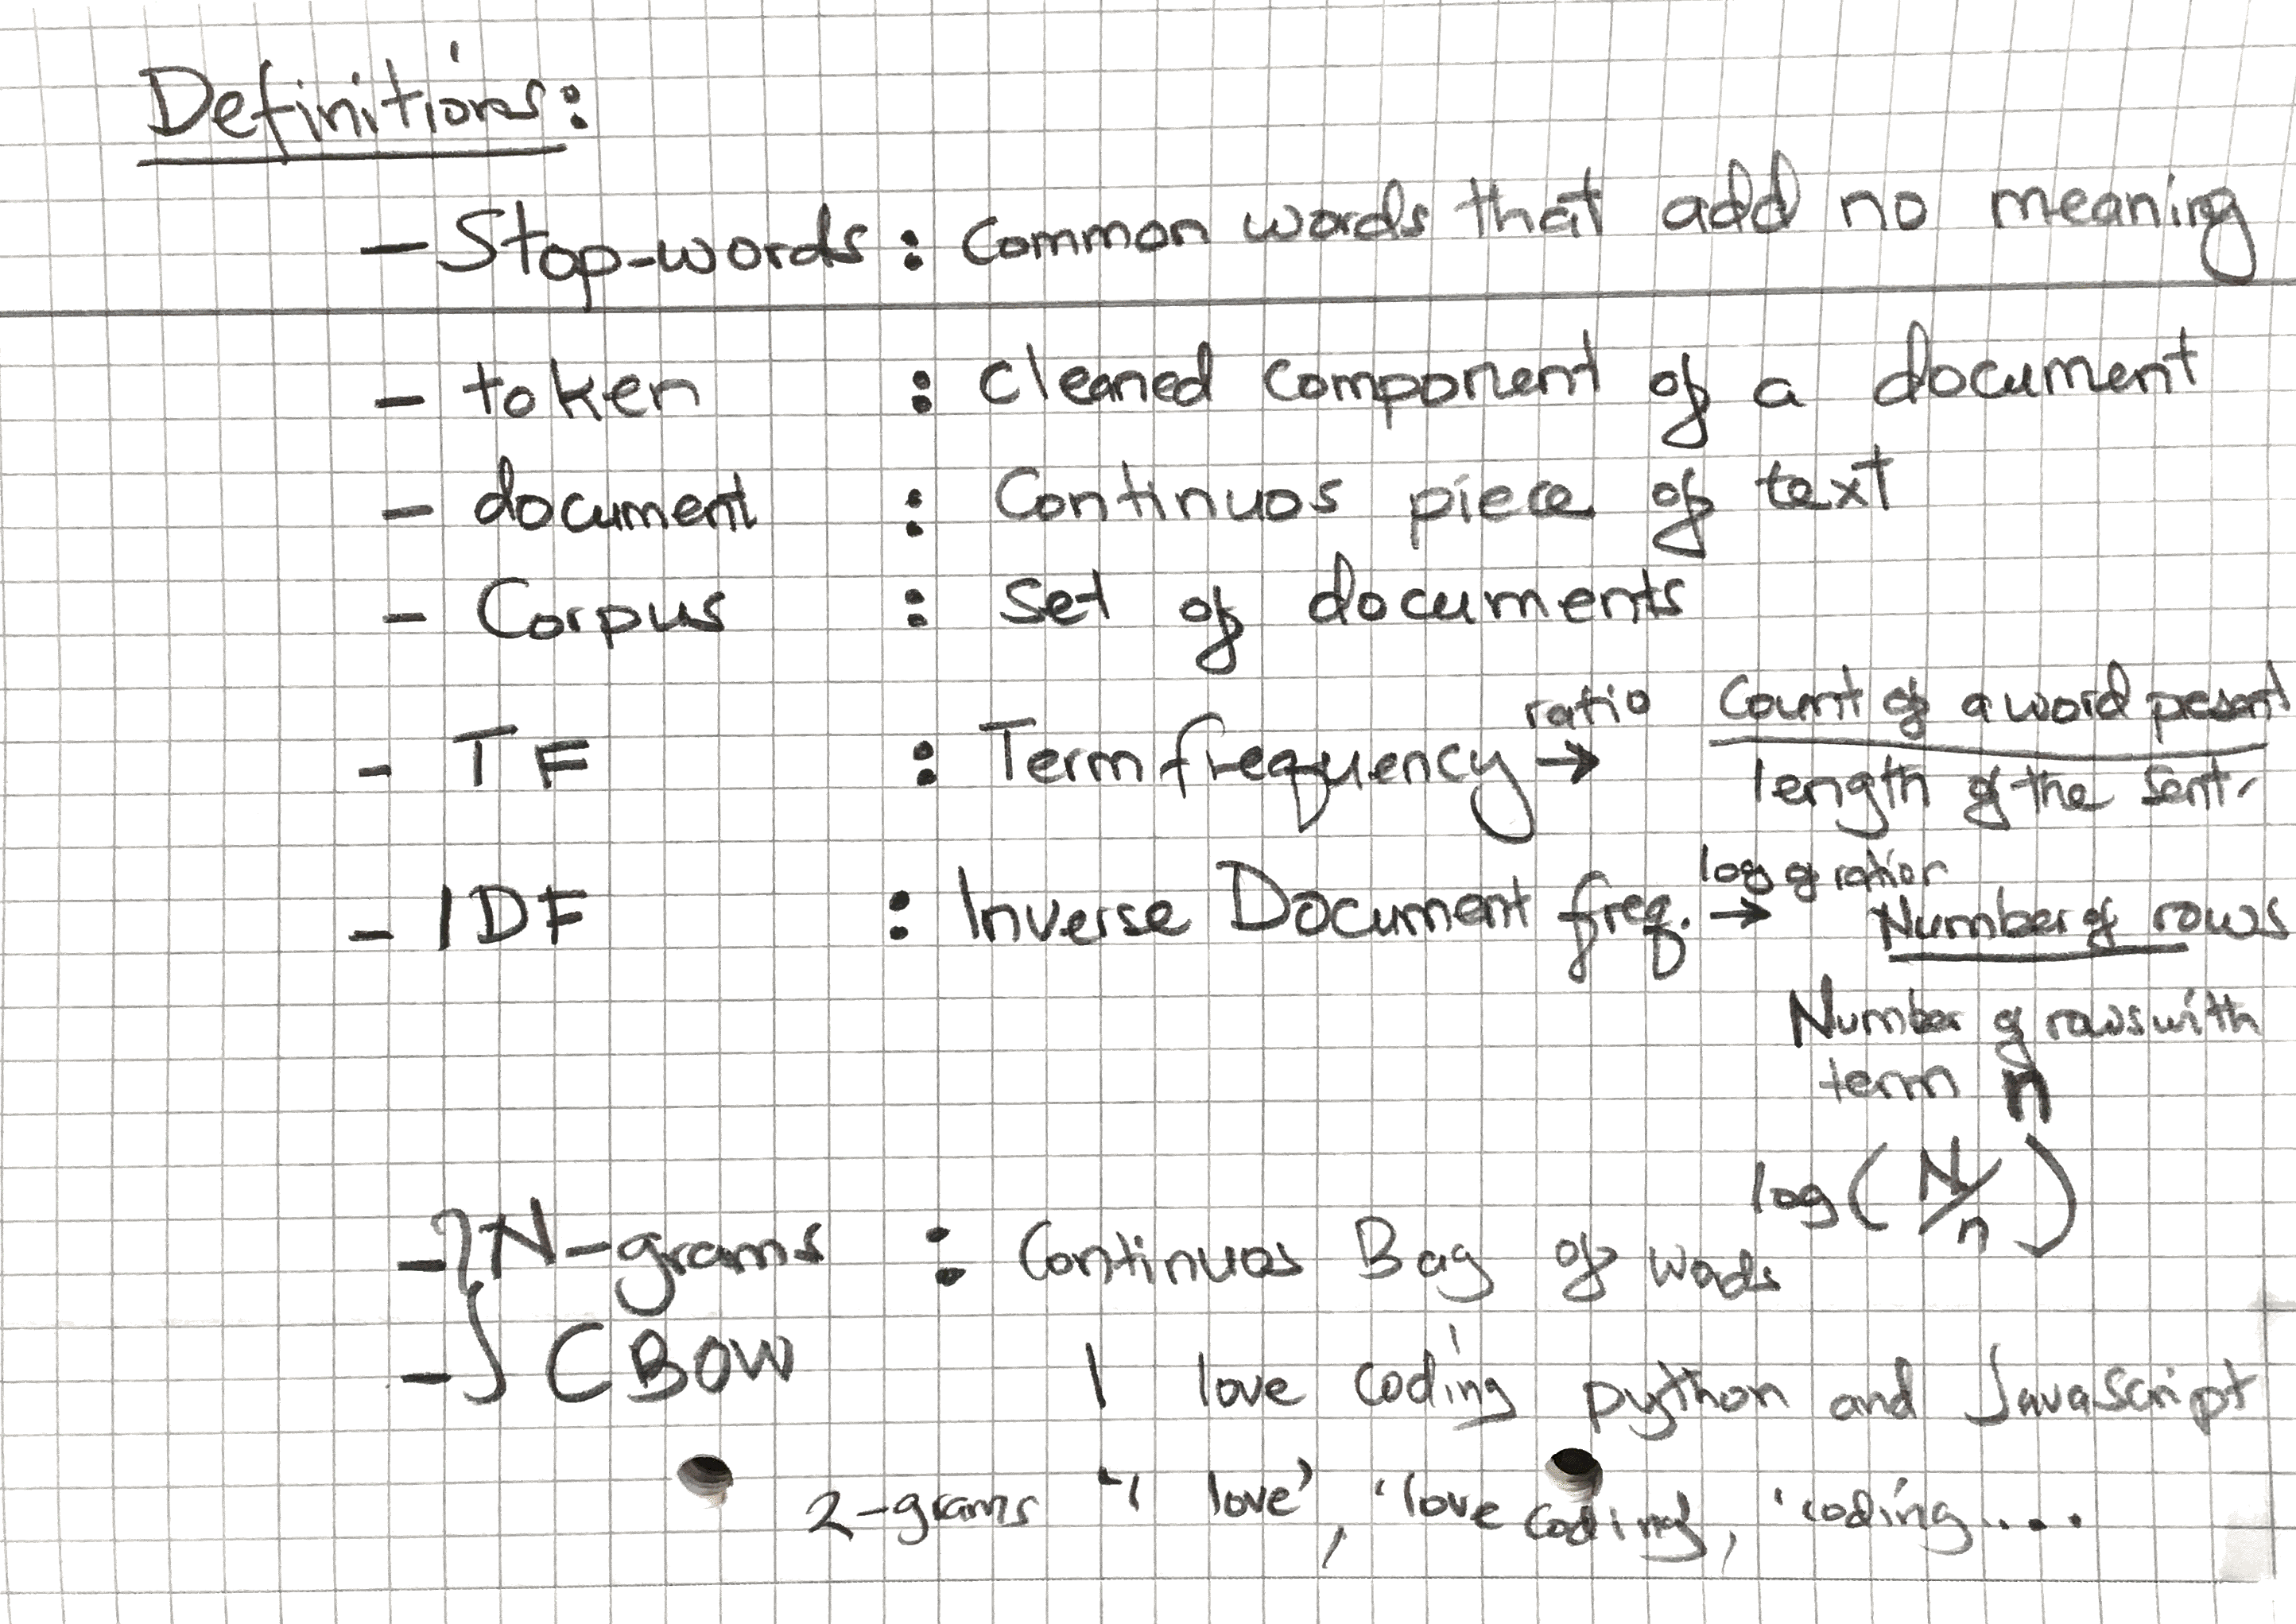 Definitions:
- Stop-words : Common words that add no meaning
- token : cleaned component of a document
- document : Continuos piece of text
- Corpus : set of documents
- TF : Term frequency ratio → Count of a word present
length of the sent.
- IDF : Inverse Document freq. log of ratio → Number of rows
Number of rows with
term n
log (N/n)
- N-grams : Continuos Bag of words
- CBOW I love coding python and Javascript
2-grams 'I love', 'love coding', 'coding....